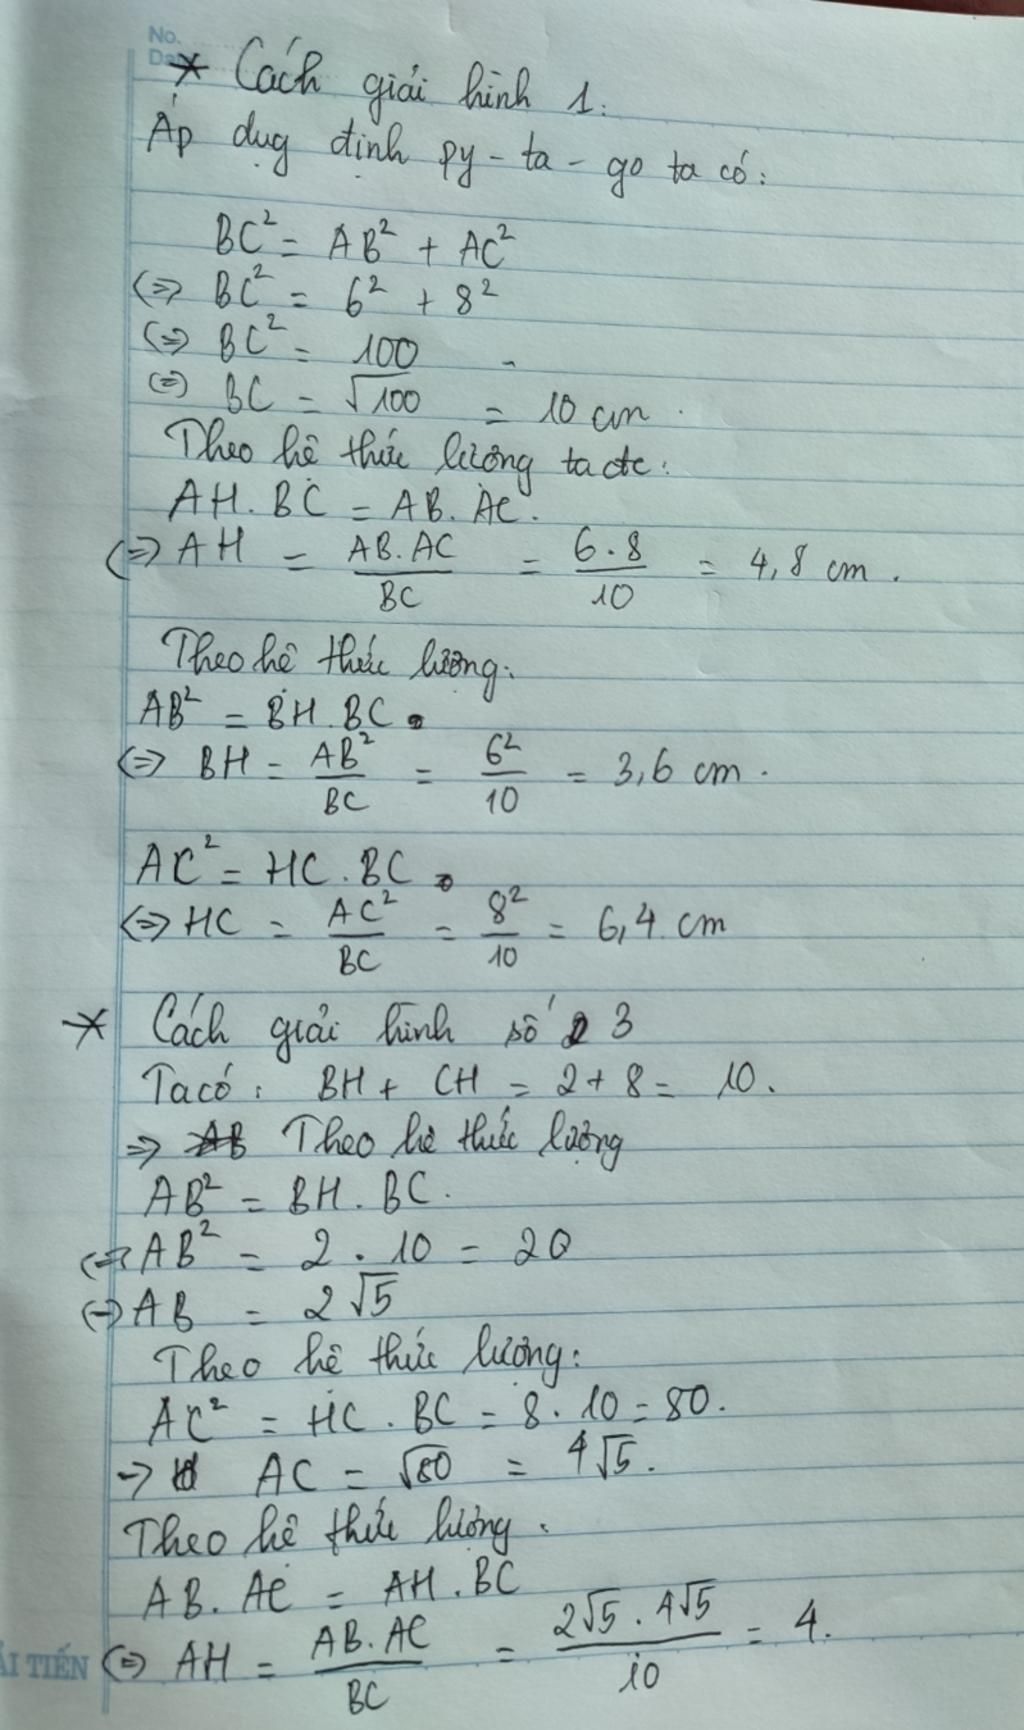 No.
Da
* Cách giải hình 1:
Áp dụg định py-ta-go ta có:
BC² = AB² + AC²
<=> BC² = 6² + 8²
<=> BC² = 100
<=> BC = √100 = 10 cm.
Theo hê thức lượng ta đc:
AH.BC = AB.AC.
<=> AH = AB.AC/BC = 6.8/10 = 4,8 cm.
Theo hê thức lượng:
AB² = BH.BC.
<=> BH = AB²/BC = 6²/10 = 3,6 cm.
AC² = HC.BC.
<=> HC = AC²/BC = 8²/10 = 6,4 cm
* Cách giải hình số 3
Ta có: BH + CH = 2+8 = 10.
=> Theo hê thức lượng
AB² = BH.BC.
<=> AB² = 2.10 = 20
<=> AB = 2√5
Theo hê thức lượng:
AC² = HC.BC = 8.10 = 80.
-> AC = √80 = 4√5.
Theo hệ thức lượng.
AB.AC = AH.BC
ẢI TIẾN <=> AH = AB.AC/BC = 2√5.4√5/10 = 4.